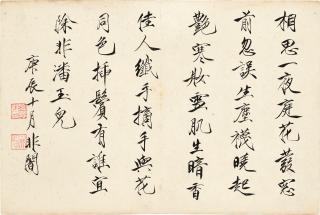 相思一夜庭花發窓
前忽誤生塵襪曉起
艷寒妝雪肌生暗香
佳人纖手摘手與花
同色插鬢有誰宜
除非潘玉兒
庚辰十月非闇